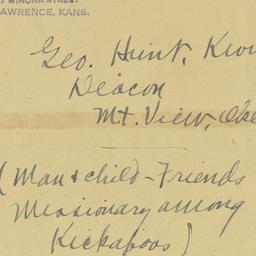 WINONA STREET
LAWRENCE, KANS.
Geo. Hunt, Kiow
Deacon
Mt. View, Okl
(Man & child - Friends
Missionary among
Kickapoos)